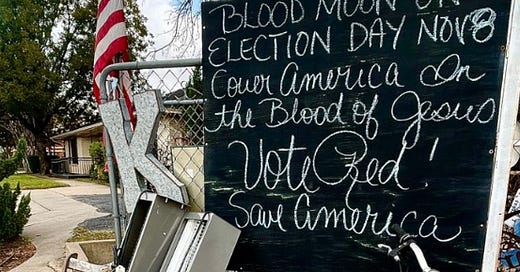 BLOOD MOON ON
ELECTION DAY NOV 8
Cover America In
the Blood of Jesus
Vote Red!
Save America
K